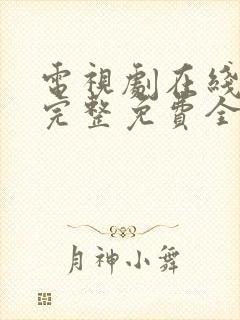 電視劇在綫
完整免費全
月神小舞